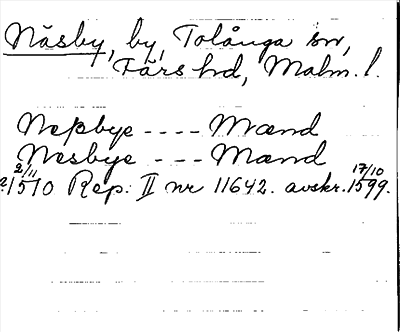 Näsby, by, Tolånga sn,
Färs hd, Malm. l.
Nepbye - - - - Mænd
Nesbye - - - Mænd
2/11 17/10
?1510 Rep. II nr 11642. avskr. 1599.